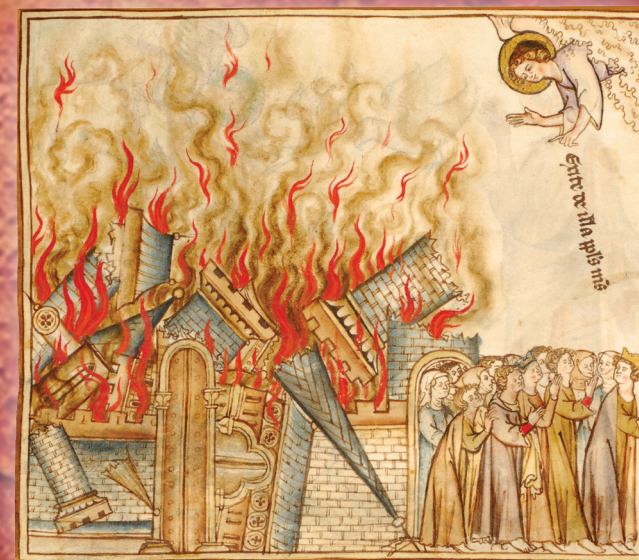 Exite de illa pp̄ls m̄s